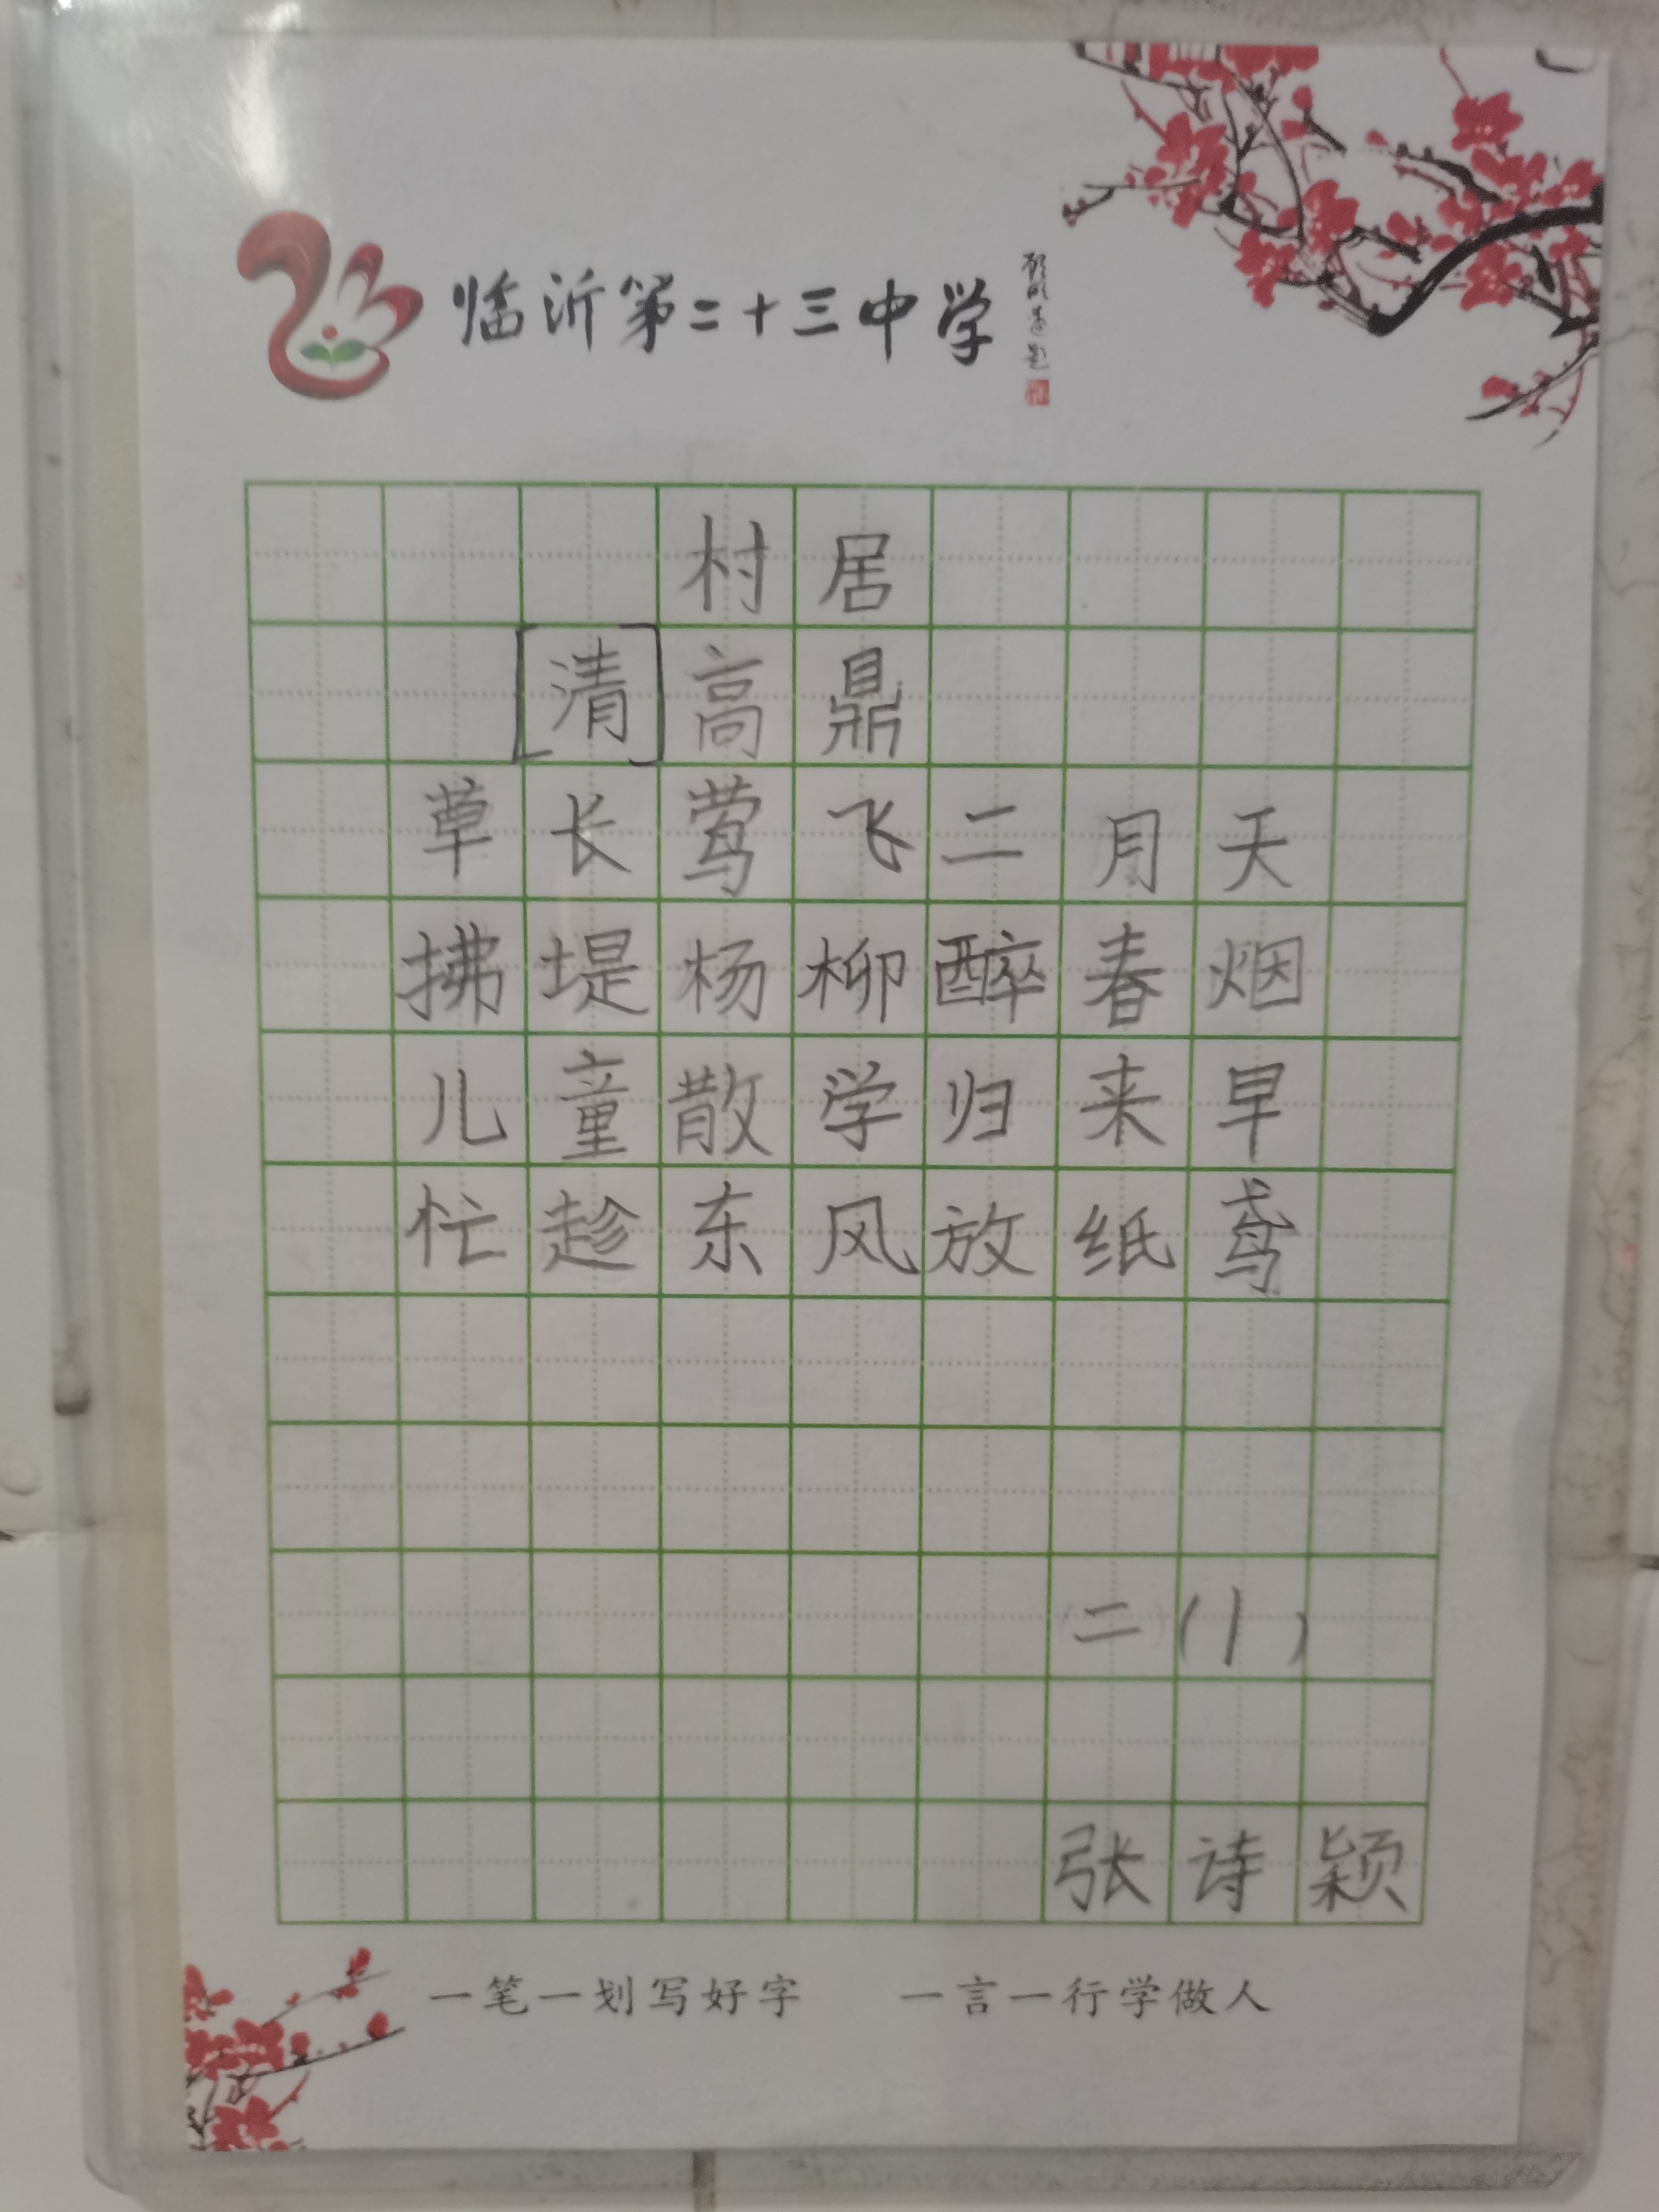 临沂第二十三中学
顾明远题
村居
[清]高鼎
草长莺飞二月天
拂堤杨柳醉春烟
儿童散学归来早
忙趁东风放纸鸢
二(1)
张诗颖
一笔一划写好字 一言一行学做人